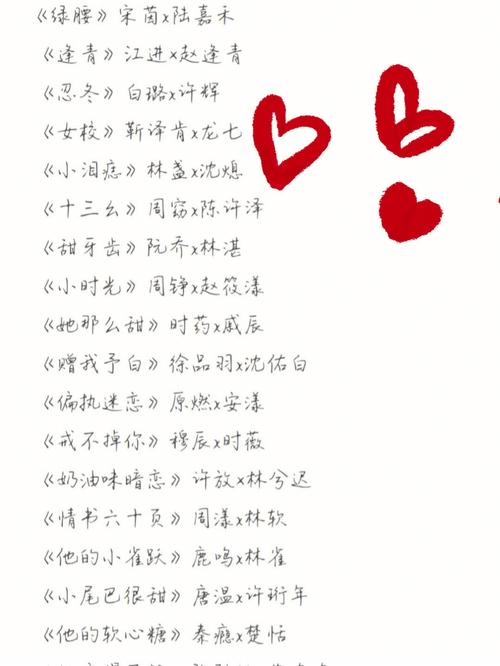 《绿腰》宋茵x陆嘉禾
《逢青》江进x赵逢青
《忍冬》白璐x许辉
《女校》靳译肯x龙七
《小泪痣》林盏x沈熄
《十三幺》周窈x陈许泽
《甜牙齿》阮乔x林湛
《小时光》周铮x赵筱漾
《她那么甜》时药x戚辰
《赠我予白》徐品羽x沈佑白
《偏执迷恋》原燃x安漾
《戒不掉你》穆辰x时薇
《奶油味暗恋》许放x林兮迟
《情书六十页》周漾x林软
《他的小雀跃》鹿鸣x林雀
《小尾巴很甜》唐温x许珩年
《他的软心糖》秦瘾x楚恬